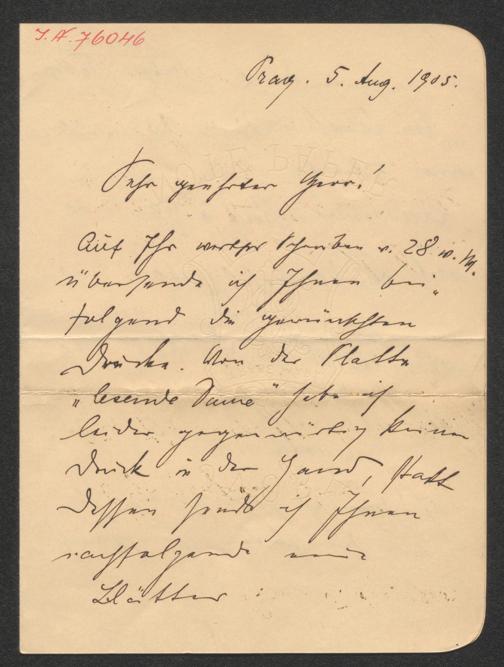 I.N. 76046
Prag. 5. Aug. 1905.
Sehr geehrter Herr!
Auf Ihr werthes Schreiben v. 28 v. M.
übersende ich Ihnen bei-
folgend die gewünschten
Drucke. Von der Platte
„lesende Dame" habe ich
leider gegenwärtig keinen
Druck in der Hand, statt
dessen sende ich Ihnen
nachfolgende
Blätter